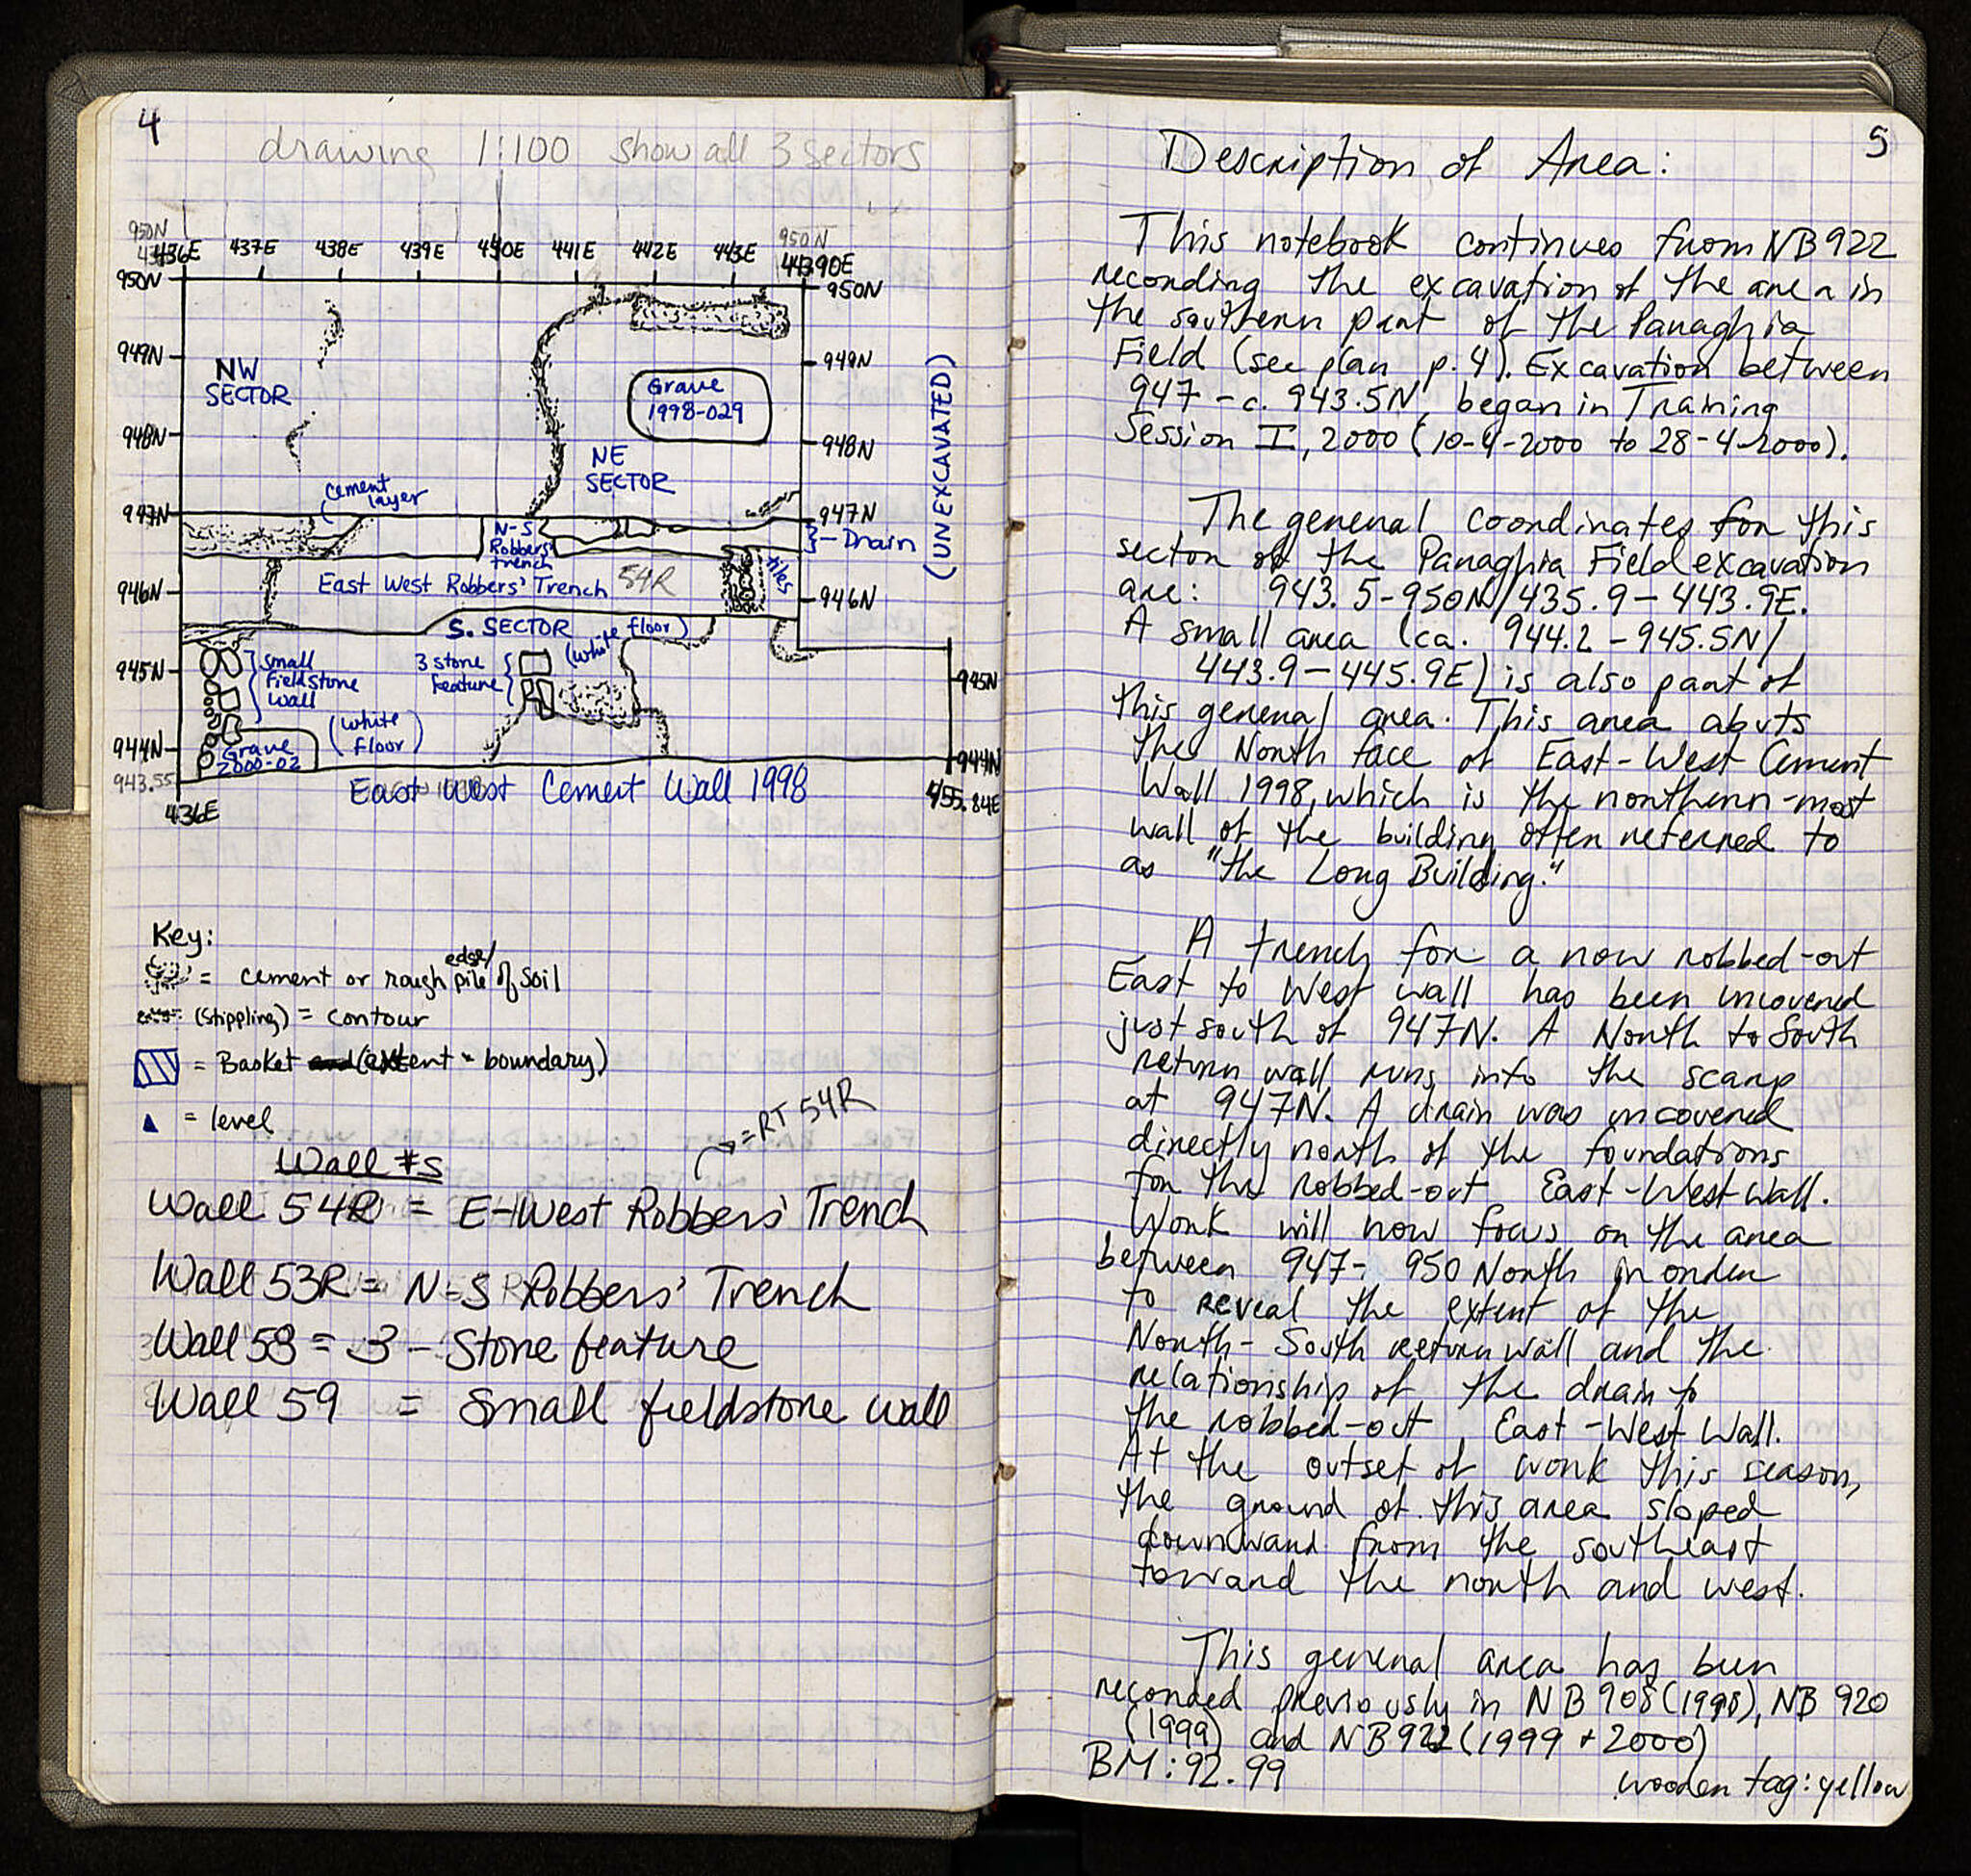 4
drawing 1:100 show all 3 sectors
950N
950N
436E 437E 438E 439E 440E 441E 442E 443E 443.90E
950N
950N
949N
949N
NW
SECTOR
Grave
1998-029
(UNEXCAVATED)
948N
948N
NE
SECTOR
cement
layer
947N
947N
N-S
Robbers'
trench
- Drain
tiles
East West Robbers' Trench 54R
946N
946N
S. SECTOR
(white floor)
3 stone
feature
small
Fieldstone
wall
945N
945N
(white
floor)
944N
944N
Grave
2000-02
943.55
East West Cement Wall 1998
436E
455.84E
Key:
= cement or rough pile edge/ of soil
(stippling) = contour
= Basket (extent - boundary)
= level
= RT 54R
Wall #s
Wall 54R = E-West Robbers' Trench
Wall 53R = N-S Robbers' Trench
Wall 58 = 3 - Stone feature
Wall 59 = Small fieldstone wall
5
Description of Area:
This notebook continues from NB 922
recording the excavation of the area in
the southern part of the Panaghia
Field (see plan p. 4). Excavation between
947 - c. 943.5N, began in Training
Session I, 2000 (10-4-2000 to 28-4-2000).
The general coordinates for this
sector of the Panaghia Field excavation
are: 943.5-950N/435.9-443.9E.
A small area (ca. 944.2-945.5N/
443.9-445.9E) is also part of
this general area. This area abuts
the North face of East-West Cement
Wall 1998, which is the northern-most
wall of the building often referred to
as "the Long Building."
A trench for a now robbed-out
East to West wall has been uncovered
just south of 947N. A North to South
return wall runs into the scarp
at 947N. A drain was uncovered
directly north of the foundations
for this robbed-out East-West wall.
Work will now focus on the area
between 947- 950 North in order
to reveal the extent of the
North-South return wall and the
relationship of the drain to
the robbed-out East-West Wall.
At the outset of work this season,
the ground of this area sloped
downward from the southeast
toward the north and west.
This general area has been
recorded previously in NB 908 (1998), NB 920
(1999) and NB 922 (1999 + 2000)
BM: 92.99
wooden tag: yellow